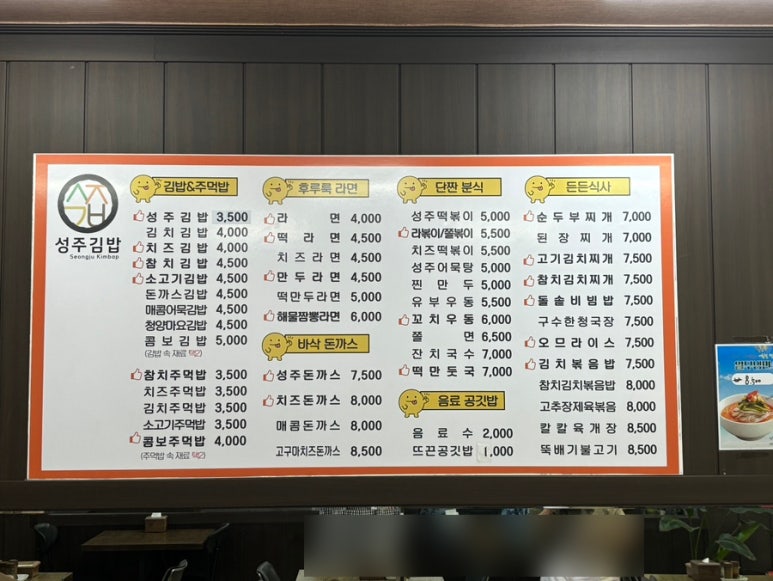 성주김밥
Seongju Kimbop
김밥&주먹밥
성주김밥 3,500
김치김밥 4,000
치즈김밥 4,000
참치김밥 4,500
소고기김밥 4,500
돈까스김밥 4,500
매콤어묵김밥 4,500
청양마요김밥 4,500
콤보김밥 5,000
(김밥 속 재료 택2)
참치주먹밥 3,500
치즈주먹밥 3,500
김치주먹밥 3,500
소고기주먹밥 3,500
콤보주먹밥 4,000
(주먹밥 속 재료 택2)
후루룩 라면
라면 4,000
떡라면 4,500
치즈라면 4,500
만두라면 4,500
떡만두라면 5,000
해물짬뽕라면 6,000
바삭 돈까스
성주돈까스 7,500
치즈돈까스 8,000
매콤돈까스 8,000
고구마치즈돈까스 8,500
단짠 분식
성주떡볶이 5,000
라볶이/쫄볶이 5,500
치즈떡볶이 5,500
성주어묵탕 5,000
찐만두 5,000
유부우동 5,500
꼬치우동 6,000
쫄면 6,500
잔치국수 7,000
떡만둣국 7,000
음료 공깃밥
음료수 2,000
뜨끈공깃밥 1,000
든든식사
순두부찌개 7,000
된장찌개 7,000
고기김치찌개 7,500
참치김치찌개 7,500
돌솥비빔밥 7,500
구수한청국장 7,500
오므라이스 7,500
김치볶음밥 7,500
참치김치볶음밥 8,000
고추장제육볶음 8,000
칼칼육개장 8,500
뚝배기불고기 8,500